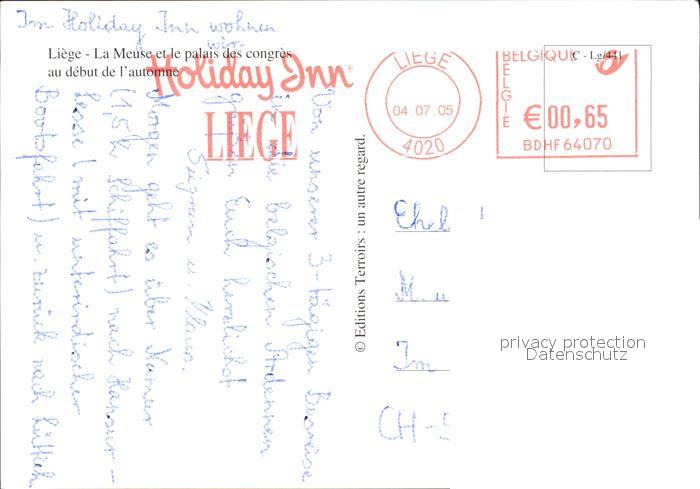 Im Holiday Inn wohnen
wir.
Liège - La Meuse et le palais des congrès
au début de l'automne
Holiday Inn
LIEGE
LIEGE
04.07.05
4020
BELGIQUE
BELGIE
€00,65
BDHF 64070
C - Lg/441
Von unserer 3-tägigen Busreise
in die belgischen Ardennen
grüssen Euch herzlichst
u. Klaus.
Morgen geht es über Namur
(1,5 h Schiffahrt) nach Hansur -
Lesse (mit unterirdischer
Bootsfahrt) u. zurück nach Lüttich.
© Editions Terroirs : un autre regard.
Ehel
M. u
Im
CH-5
privacy protection
Datenschutz